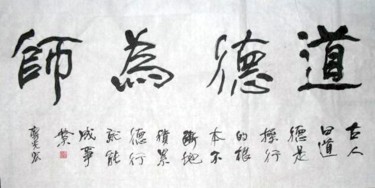 道德為師
古人
曰道
德是
操行
的根
本不
斷地
積累
德行
就能
成事
業